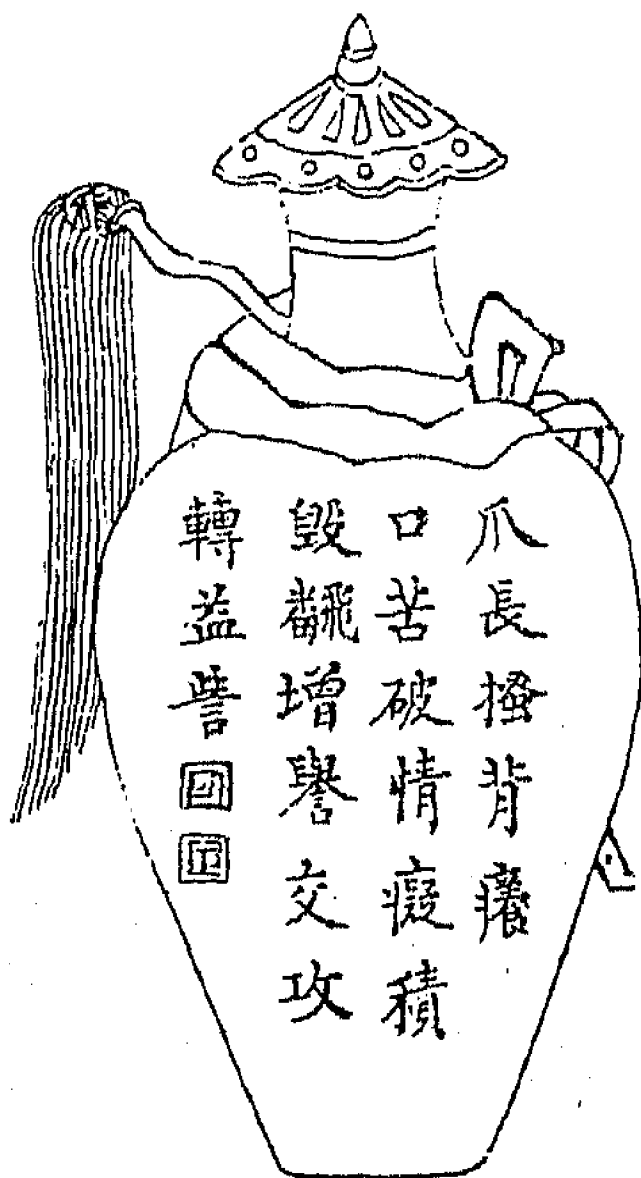 爪長搔背癢
口苦破情癡積
毀飜增譽交攻
轉益